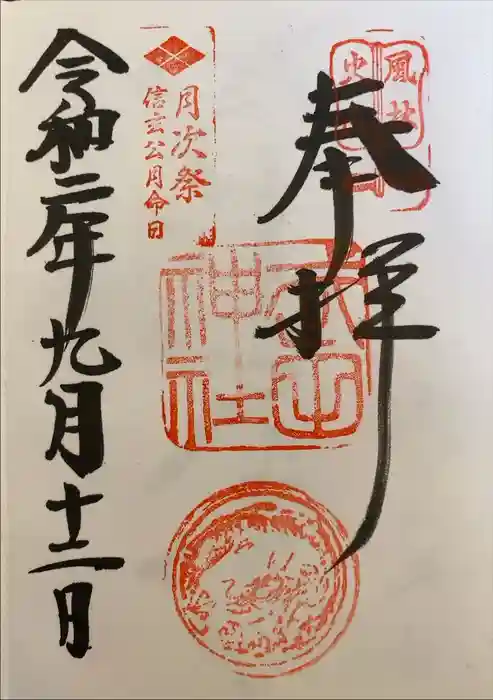 風林
火
奉拝
武田
神社
月次祭
信玄公月命日
令和二年九月十二日